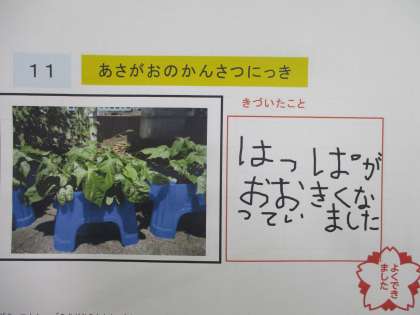 11
あさがおのかんさつにっき
きづいたこと
はっぱが
おおきくな
っていました
よくでき
ました